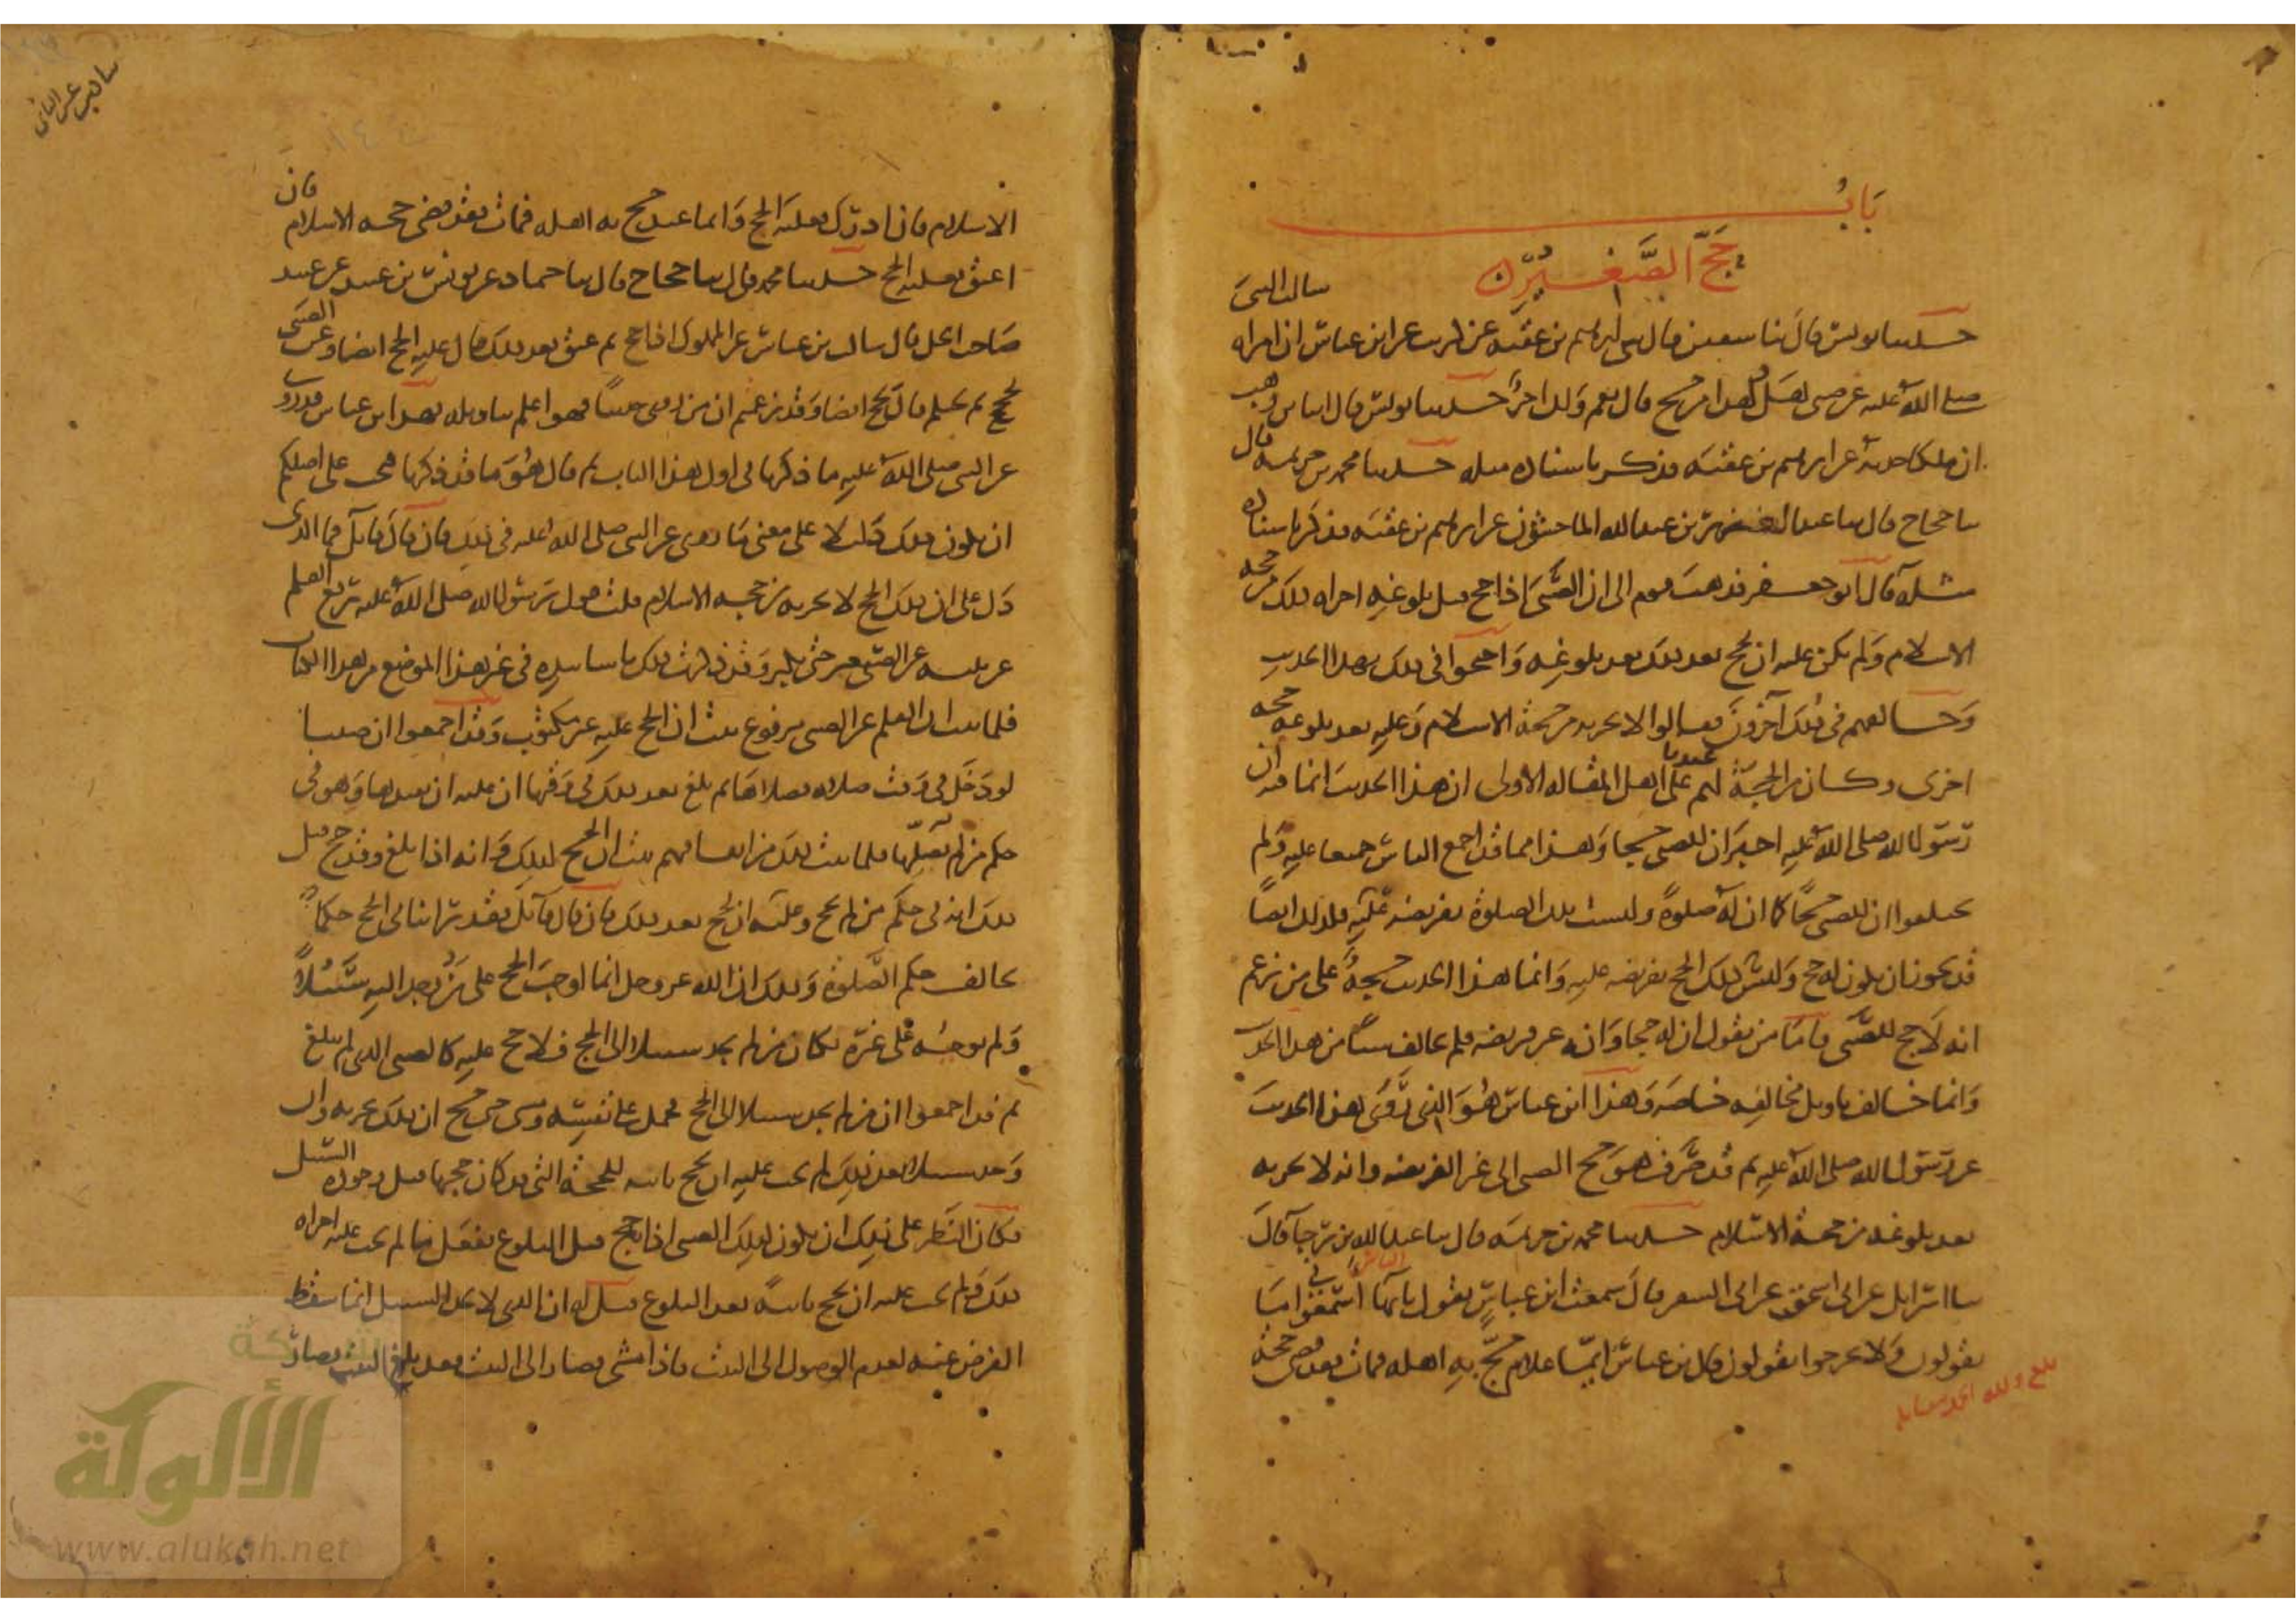 باب
حج الصغير
حدثنا يونس قال ثنا سفين قال ثنى ابرهيم بن عقبة عن كريب عن ابن عباس ان امراه سالت النبى
صلى الله عليه عن صبى هل لهذا من حج قال نعم ولك اجر حدثنا يونس قال انا بن وهب
ان ملكا حدثه عن ابرهيم بن عقبه فذكر باسناده مثله حدثنا محمد بن خزيمه قال
ثنا حجاج قال ثنا عبد العزيز بن عبد الله الماجشون عن ابرهيم بن عقبه فذكر باسناده
مثله قال ابو جعفر فذهب قوم الى ان الصبى اذا حج قبل بلوغه اجزاه ذلك من حجه
الاسلام ولم يكن عليه ان يحج بعد ذلك بعد بلوغه واحتجوا فى ذلك بهذا الحديث
وخالفهم فى ذلك آخرون فقالوا لا يجزيه من حجة الاسلام وعليه بعد بلوغه حجه
اخرى وكان من الحجة لهم عندنا على اهل المقاله الاولى ان هذا الحديث انما فيه ان
رسول الله صلى الله عليه اخبر ان للصبى حجا وهذا مما قد اجمع الناس جميعا عليه ولم
يختلفوا ان للصبى حجا كما ان له صلوة وليست تلك الصلوة بفريضه عليه فكذلك ايضا
قد يجوز ان يكون له حج وليس ذلك الحج بفريضه عليه وانما هذا الحديث حجة على من زعم
انه لا حج للصبى فاما من يقول ان له حجا وانه غير فريضه فلم يخالف شيئا من هذا الحديث
وانما خالف تاويل مخالفه خاصه وهذا ابن عباس هو الذى روى هذا الحديث
عن رسول الله صلى الله عليه ثم قد صرف هو حج الصبى الى غير الفريضه وانه لا يجزيه
بعد بلوغه من حجة الاسلام حدثنا محمد بن خزيمه قال ثنا عبد الله بن رجا قال
ثنا اسرائيل عن ابى اسحق عن ابى السفر قال سمعت ابن عباس يقول يا ايها الناس اسمعونى ما
تقولون ولا تخرجوا تقولون قال بن عباس ايما غلام حج به اهله فمات فقد قضى حجة
بلغ ولله الحمد مقابله
الاسلام فان ادرك فعليه الحج وايما عبد حج به اهله فمات فقد قضى حجه الاسلام فان
اعتق فعليه الحج حدثنا محمد قال ثنا حجاج قال ثنا حماد عن يونس بن عبيد عن عبيد
صاحب الحلى قال سالت بن عباس عن المملوك اذا حج ثم عتق بعد ذلك قال عليه الحج ايضا وعن الصبى
يحج ثم يحتلم قال يحج ايضا وقد زعمتم ان من روى حديثا فهو اعلم بتاويله فهذا ابن عباس قد روى
عن النبى صلى الله عليه ما ذكرنا فى اول هذا الباب ثم قال هو ما قد ذكرنا فيجب على اصلكم
ان يكون ذلك دليلا على معنى ما روى عن النبى صلى الله عليه فى ذلك فان قال قائل فما الذى
دل على ان ذلك الحج لا يجزيه من حجه الاسلام قلت قول رسول الله صلى الله عليه رفع القلم
عن ثلثه عن الصبى حتى يكبر وقد ذكرت ذلك باسانيده فى غير هذا الموضع من هذا الكتاب
فلما ثبت ان القلم عن الصبى مرفوع ثبت ان الحج عليه غير مكتوب وقد اجمعوا ان صبيا
لو دخل فى وقت صلاه فصلاها ثم بلغ بعد ذلك فى وقتها ان عليه ان يعيدها وهو فى
حكم من لم يصلها فلما ثبت ذلك من اتفاقهم ثبت ان الحج كذلك وانه اذا بلغ وقد حج قبل
ذلك انه فى حكم من لم يحج وعليه ان يحج بعد ذلك فان قال قائل فقد راينا فى الحج حكما
يخالف حكم الصلوة وذلك ان الله عز وجل انما اوجب الحج على من وجد اليه سبيلا
ولم يوجبه على غيره فكان من لم يجد سبيلا الى الحج فلا حج عليه كالصبى الذى لم يبلغ
ثم قد اجمعوا ان من لم يجد سبيلا الى الحج فحمل على نفسه ومشى حتى حج ان ذلك يجزيه وان
وجد سبيلا بعد ذلك لم يجب عليه ان يحج ثانيه للحجة التى قد كان حجها قبل وجوده السبيل
فكان النظر على ذلك ان يكون كذلك الصبى اذا حج قبل البلوغ ففعل ما لم يجب عليه اجزاه
ذلك ولم يجب عليه ان يحج ثانية بعد البلوغ قيل له ان الذى لا يجد السبيل انما سقط
الفرض عنه لعدم الوصول الى البيت فاذا مشى فصار الى البيت فقد بلغ البيت فصار
شبكة
الألوكة
www.alukah.net